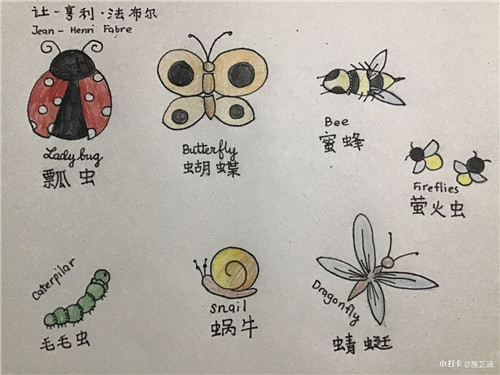 让-亨利·法布尔
Jean - Henri Fabre
Lady bug
瓢虫
Butterfly
蝴蝶
Bee
蜜蜂
Fireflies
萤火虫
Caterpilar
毛毛虫
snail
蜗牛
Dragonfly
蜻蜓
小打卡